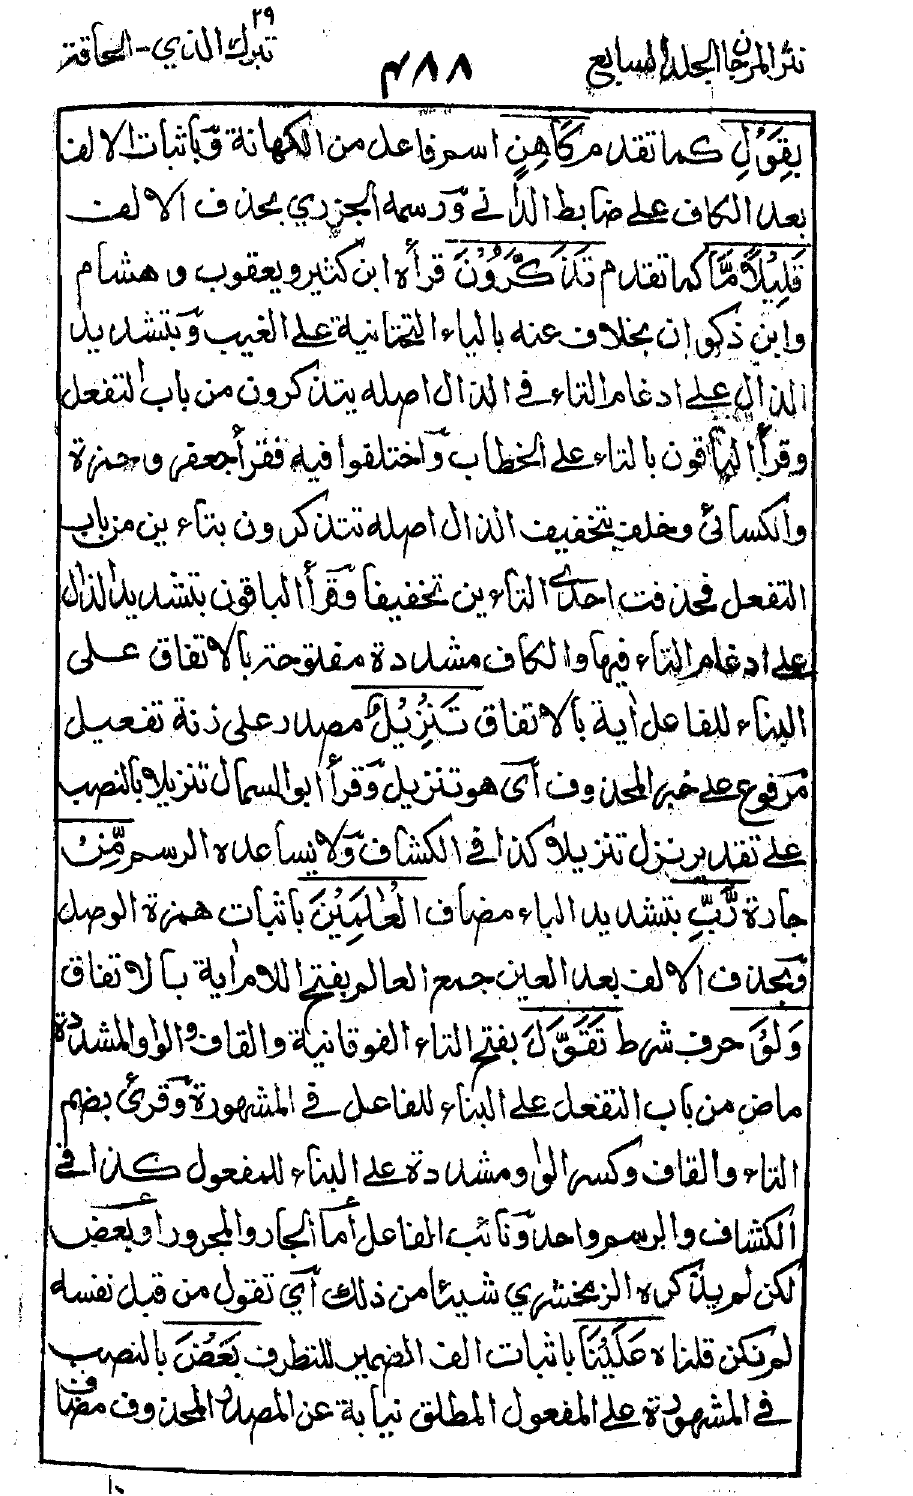 ٢٩
نثر المرجان الجلد السابع
٤٨٨
تبرك الذي - الحاقة
بِقَوْلِ كما تقدم كَاهِنٍ اسم فاعل من الكهانة وَباثبات الالف
بعد الكاف على ضابط الداني وَرسمه الجزري بحذف الالف
قَلِيْلًا مَّا كما تقدم تَذَكَّرُوْنَ قرأه ابن كثير ويعقوب و هشام
وابن ذكوان بخلاف عنه بالياء التحتانية على الغيب وَبتشديد
الذال على ادغام التاء في الذال اصله يتذكرون من باب التفعل
وقرأ الباقون بالتاء على الخطاب وَاختلفوا فيه فقرأ جعفر وحمزة
والكسائي وخلف بتخفيف الذال اصله تتذكرون بتاءين من باب
التفعل فحذفت احدى التاءين تخفيفا وَقرأ الباقون بتشديد الذال
على ادغام التاء فيها والكاف مشددة مفتوحة بالاتفاق على
البناء للفاعل اية بالاتفاق تَنْزِيْلٌ مصدر على زنة تفعيل
مرفوع على خبر المحذوف أي هو تنزيل وَقرأ ابو السمال تنزيلا بالنصب
على تقدير نزل تنزيلا كذا في الكشاف وَلا يساعده الرسم مِّنْ
جارة رَّبِّ بتشديد الباء مضاف الْعٰلَمِيْنَ باثبات همزة الوصل
وَبحذف الالف بعد العين جمع العالم بفتح اللام اية بالاتفاق
وَلَوْ حرف شرط تَقَوَّلَ بفتح التاء الفوقانية والقاف والواو المشددة
ماض من باب التفعل على البناء للفاعل في المشهورة وَقرئ بضم
التاء والقاف وكسر الواو مشددة على البناء للمفعول كذا في
الكشاف والرسم واحد وَنائب الفاعل أما الجار والمجرور او بعض
لكن لم يذكره الزمخشري شيئا من ذلك أي تقول من قبل نفسه
لم نكن قلناه عَلَيْنَا باثبات الف الضمير للتطرف بَعْضَ بالنصب
في المشهورة على المفعول المطلق نيابة عن المصدر المحذوف مضاف